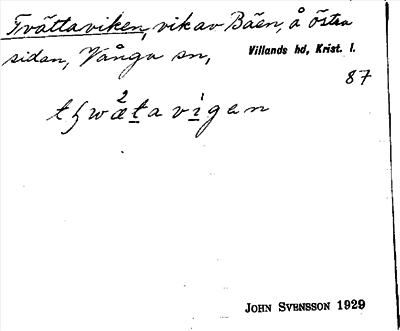 Tvättaviken, vik av Bäen, å östra
sidan, Vånga sn, Villands hd, Krist. l.
87
JOHN SVENSSON 1929